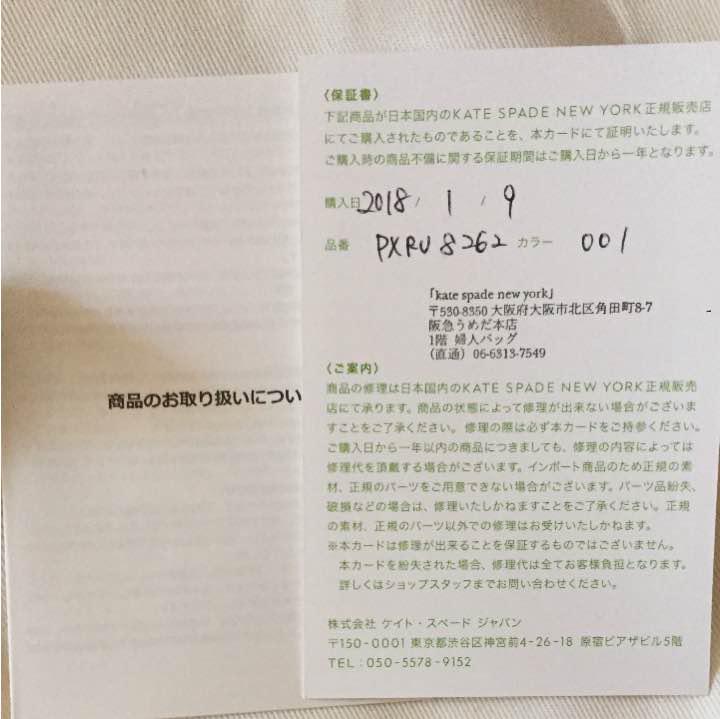 商品のお取り扱いについ
〈保証書〉
下記商品が日本国内のKATE SPADE NEW YORK正規販売店
にてご購入されたものであることを、本カードにて証明いたします。
ご購入時の商品不備に関する保証期間はご購入日から一年となります。
購入日 2018 / 1 / 9
品番 PXRU 8262 カラー 001
「kate spade new york」
〒530-8350 大阪府大阪市北区角田町8-7
阪急うめだ本店
1階 婦人バッグ
（直通）06-6313-7549
〈ご案内〉
商品の修理は日本国内のKATE SPADE NEW YORK正規販売
店にて承ります。商品の状態によって修理が出来ない場合がございま
すことをご了承ください。修理の際は必ず本カードをご持参ください。
ご購入日から一年以内の商品につきましても、修理の内容によっては
修理代を頂戴する場合がございます。インポート商品のため正規の素
材、正規のパーツをご用意できない場合がございます。パーツ品紛失、
破損などの場合は、修理いたしかねますことをご了承ください。正規
の素材、正規のパーツ以外での修理はお受けいたしかねます。
※本カードは修理が出来ることを保証するものではございません。
本カードを紛失された場合、修理代は全てお客様負担となります。
詳しくはショップスタッフまでお問い合わせください。
株式会社 ケイト・スペード ジャパン
〒150-0001 東京都渋谷区神宮前4-26-18 原宿ピアザビル5階
TEL：050-5578-9152